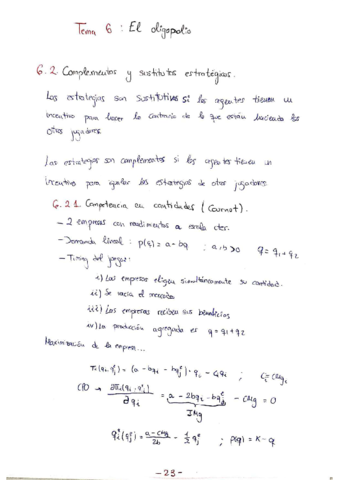 Tema 6 : El oligopolio
6.2. Complementos y sustitutos estratégicos.
Las estrategias son sustitutivas si los agentes tienen un
incentivo para hacer lo contrario de lo que están haciendo los
otros jugadores.
Las estrategias son complementos si los agentes tienen un
incentivo para igualar las estrategias de otros jugadores.
6.2.1. Competencia en cantidades (Cournot).
- 2 empresas con rendimientos a escala ctes.
- Demanda lineal : p(q) = a - bq ; a, b > 0 q = q₁ + q₂
- Timing del juego:
i) Las empresas eligen simultáneamente su cantidad.
ii) Se vacía el mercado
iii) Las empresas reciben sus beneficios
iv) La producción agregada es q = q₁ + q₂
Maximización de la empresa...
πi(qi, qjᵉ) = (a - bqi - bqjᵉ) · qi - Ciqi ; Ci = CMgi
CPO → ∂πi(qi, qjᵉ) / ∂qi = a - 2bqi - bqjᵉ - CMg = 0
IMg
qiᵉ(qjᵉ) = a - CMg / 2b - 1/2 qjᵉ ; p(q) = K - q
- 23 -